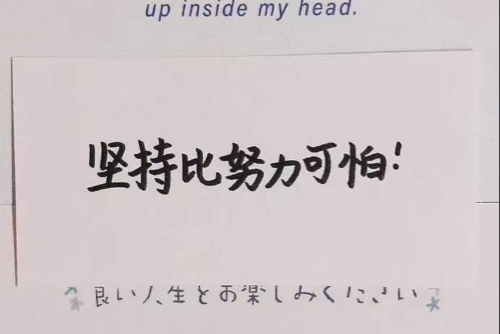 up inside my head.
坚持比努力可怕!
良い人生をお楽しみください